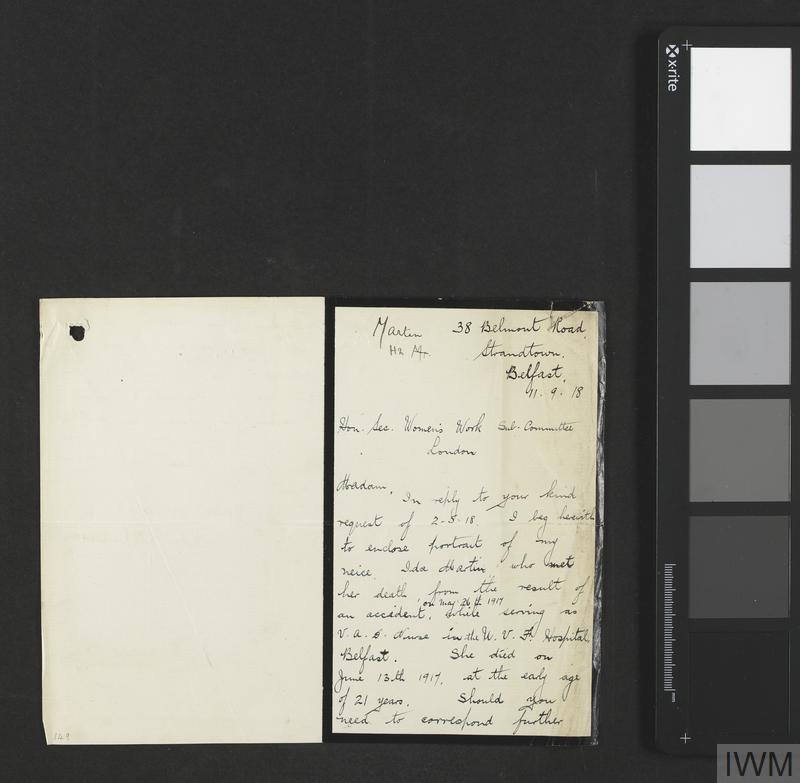 Martin
38 Belmont Road,
Strandtown.
Belfast.
11. 9. 18
Hon. Sec. Women's Work Sub-Committee
London
Madam,
In reply to your kind
request of 2-5-18. I beg herewith
to enclose portrait of my
neice Ida Martin, who met
her death from the result of
an accident, on May 26th 1917 while serving as
V. A. D. Nurse in the U. V. F. Hospital
Belfast. She died on
June 13th 1917, at the early age
of 21 years. Should you
need to correspond further
149
x-rite
mm
IWM